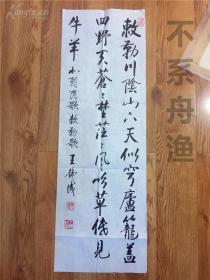 敕勒川陰山下天似穹廬籠蓋
四野天蒼〻野茫〻風吹草低見
牛羊 北朝民歌 敕勒歌 王
不系舟渔